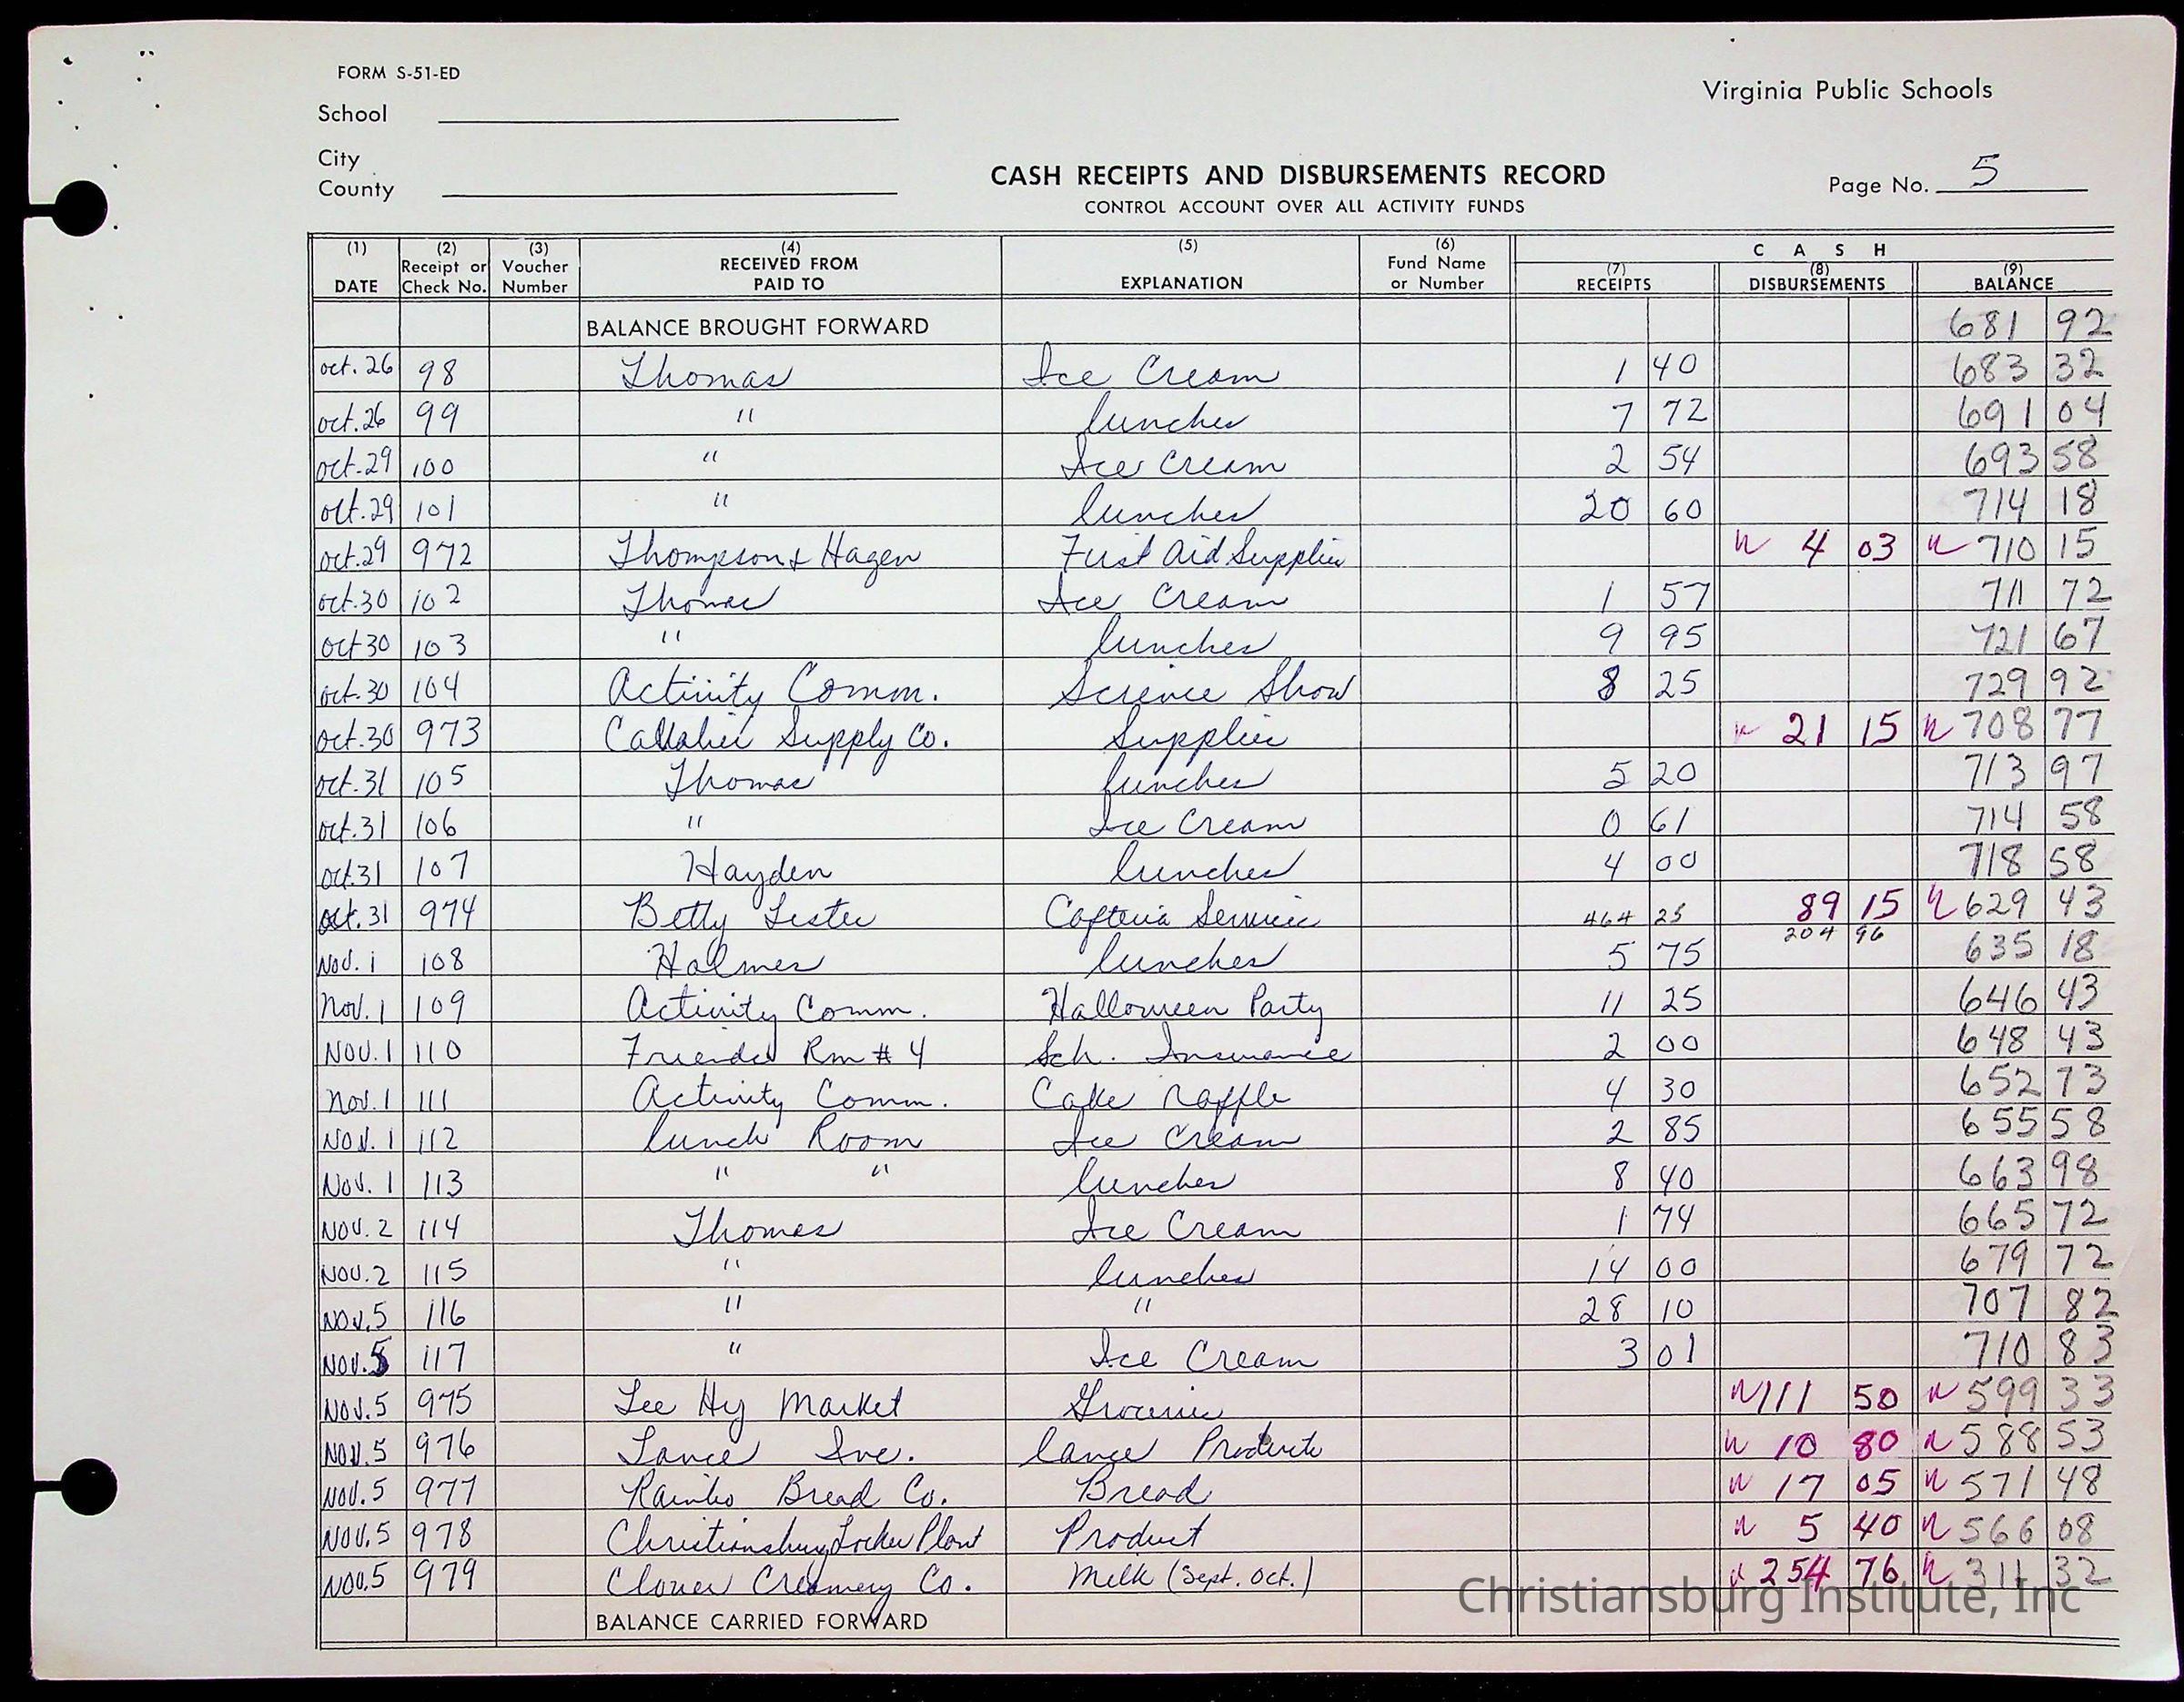 FORM S-51-ED
Virginia Public Schools
School
City
County
CASH RECEIPTS AND DISBURSEMENTS RECORD
CONTROL ACCOUNT OVER ALL ACTIVITY FUNDS
Page No. 5
(1) DATE (2) Receipt or Check No. (3) Voucher Number (4) RECEIVED FROM PAID TO (5) EXPLANATION (6) Fund Name or Number CASH (7) RECEIPTS (8) DISBURSEMENTS (9) BALANCE
BALANCE BROUGHT FORWARD 681 92
oct. 26 98 Thomas Ice Cream 1 40 683 32
oct. 26 99 " lunches 7 72 691 04
oct. 29 100 " Ice Cream 2 54 693 58
oct. 29 101 " lunches 20 60 714 18
oct. 29 972 Thompson & Hagen First Aid Supplies 4 03 710 15
oct. 30 102 Thomas Ice Cream 1 57 711 72
oct 30 103 " lunches 9 95 721 67
oct. 30 104 Activity Comm. Science Show 8 25 729 92
oct. 30 973 Supply Co. Supplies 21 15 708 77
oct. 31 105 Thomas lunches 5 20 713 97
oct. 31 106 " Ice Cream 0 61 714 58
oct. 31 107 Hayden lunches 4 00 718 58
oct. 31 974 Betty Lester Cafteria Service 464 25 89 15 629 43
204 96
Nov. 1 108 Holmes lunches 5 75 635 18
Nov. 1 109 Activity Comm. Halloween Party 11 25 646 43
Nov. 1 110 Friends Rm # 4 Sch. Insurance 2 00 648 43
Nov. 1 111 Activity Comm. Cake Raffle 4 30 652 73
Nov. 1 112 lunch Room Ice Cream 2 85 655 58
Nov. 1 113 " " lunches 8 40 663 98
Nov. 2 114 Thomas Ice Cream 1 74 665 72
Nov. 2 115 " lunches 14 00 679 72
Nov. 5 116 " " 28 10 707 82
Nov. 5 117 " Ice Cream 3 01 710 83
Nov. 5 975 Lee Hy Market Groceries 111 50 599 33
Nov. 5 976 Lance Inc. lance Products 10 80 588 53
Nov. 5 977 Rainbo Bread Co. Bread 17 05 571 48
Nov. 5 978 Christiansburg Locker Plant Product 5 40 566 08
Nov. 5 979 Clover Creamery Co. Milk (Sept. Oct.) 254 76 311 32
BALANCE CARRIED FORWARD
Christiansburg Institute, Inc